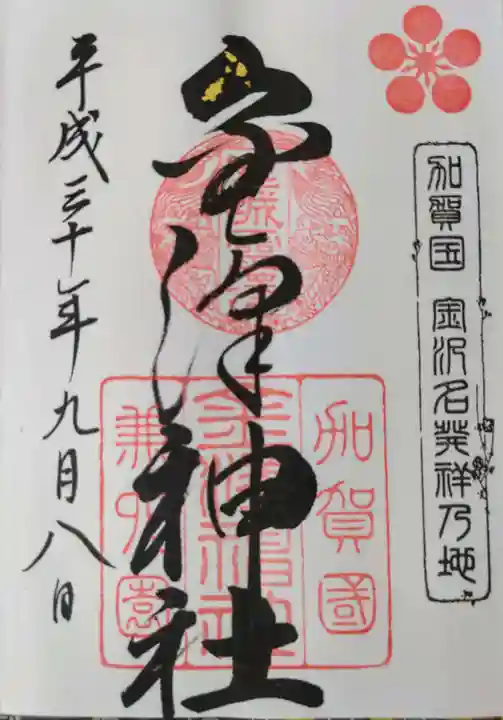 加賀国 金沢名発祥乃地
金澤神社
加賀國
金澤神社
兼六園
平成三十年九月八日